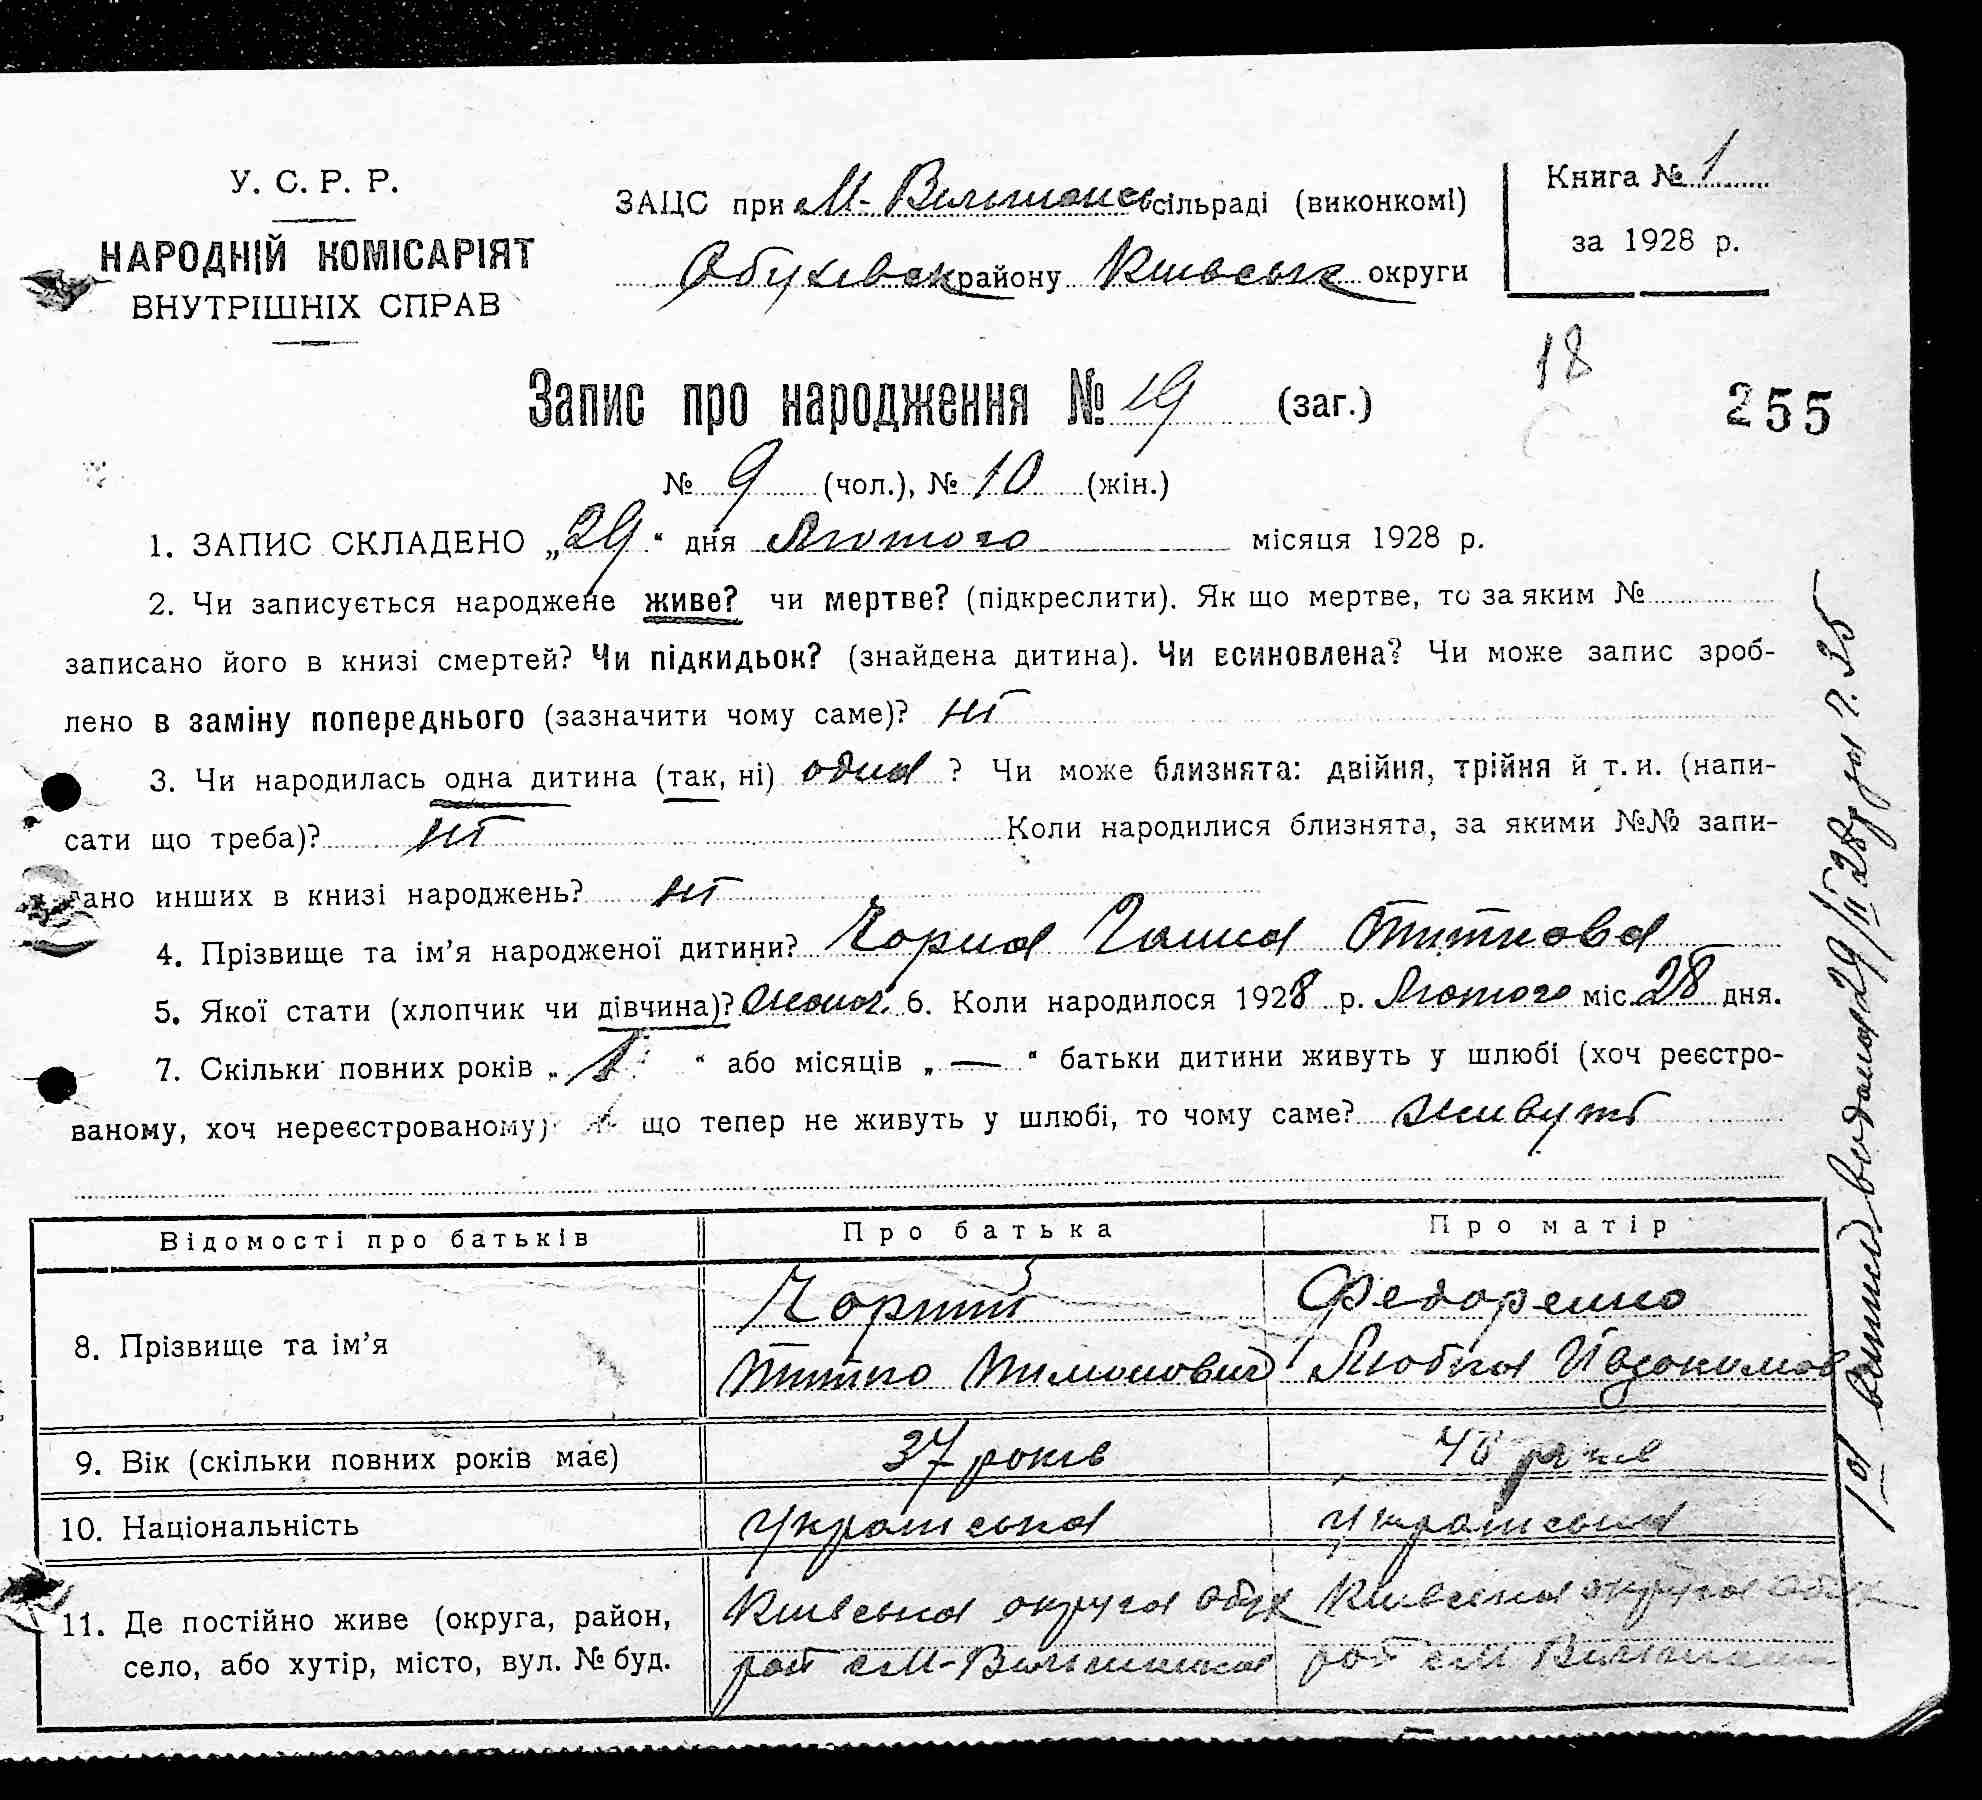 У. С. Р. Р.
НАРОДНІЙ КОМІСАРІЯТ
ВНУТРІШНІХ СПРАВ
ЗАЦС при М-Вильшансь сільраді (виконкомі)
Обухівськ району Київськ округи
Книга № 1
за 1928 р.
18
255
Запис про народження № 19 (заг.)
№ 9 (чол.), № 10 (жін.)
1. ЗАПИС СКЛАДЕНО „29“ дня Лютого місяця 1928 р.
2. Чи записується народжене живе? чи мертве? (підкреслити). Як що мертве, то за яким №
записано його в книзі смертей? Чи підкидьок? (знайдена дитина). Чи всиновлена? Чи може запис зроб-
лено в заміну попереднього (зазначити чому саме)? ні
3. Чи народилась одна дитина (так, ні) одна ? Чи може близнята: двійня, трійня й т. и. (напи-
сати що треба)? ні Коли народилися близнята, за якими №№ запи-
сано инших в книзі народжень? ні
4. Прізвище та ім’я народженої дитини? Чорна Ганна Титкова
5. Якої стати (хлопчик чи дівчина)? жіноч. 6. Коли народилося 1928 р. Лютого міс. 28 дня.
7. Скільки повних років „1“ або місяців „—“ батьки дитини живуть у шлюбі (хоч реєстро-
ваному, хоч нереєстрованому) що тепер не живуть у шлюбі, то чому саме? живуть
Відомості про батьків Про батька Про матір
8. Прізвище та ім’я Чорний Титко Пимонович Федоренко Любка Йвдокимов
9. Вік (скільки повних років має) 37 років років
10. Національність українська українська
11. Де постійно живе (округа, район,
село, або хутір, місто, вул. № буд.
Київська округа Обух
рай с М-Вильшанка
Київська округа Обух
рай с М Вильшанка
випись видана 29/II 28 р за №. 35